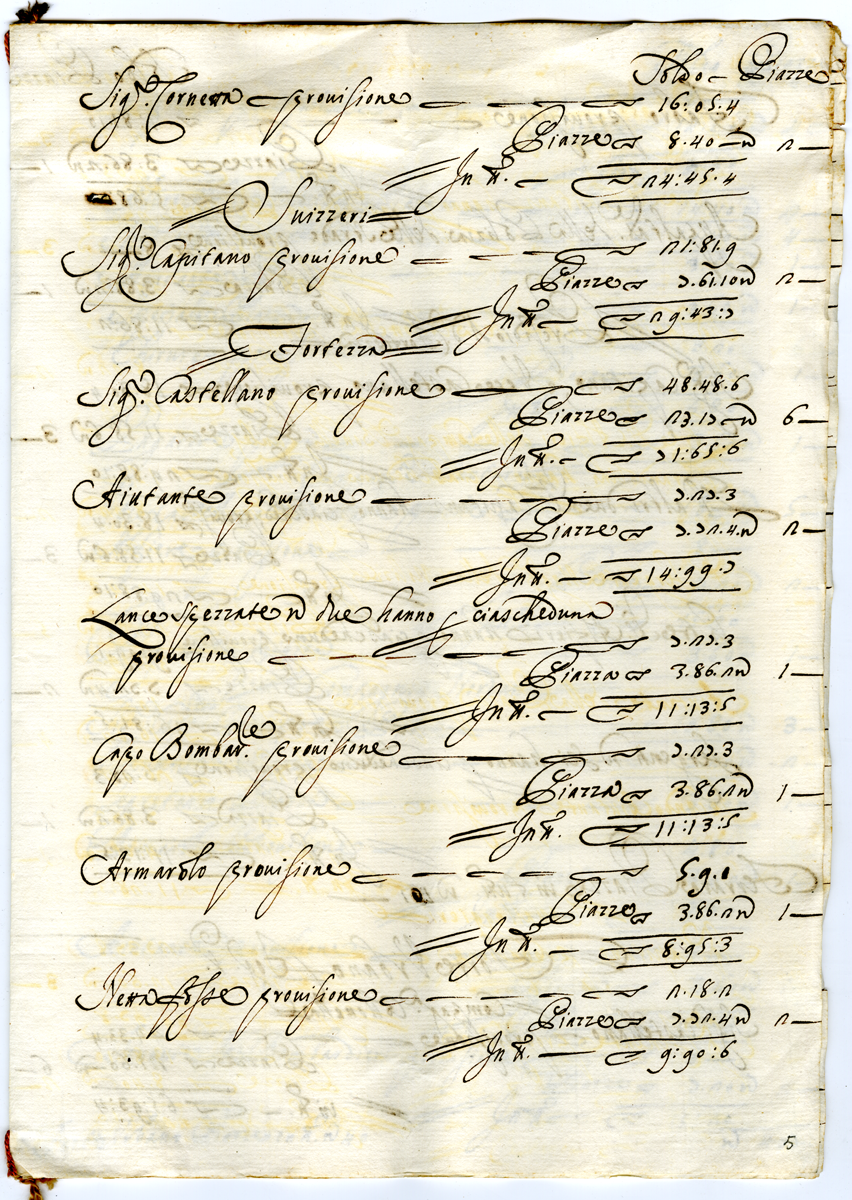 Soldo – Piazze
Sig.r Cornetta provisione — 16:05.4
Piazze 8.40 – n° 2 —
In tt.o — 24:45.4
Suizzeri
Sig.r Capitano provisione — 21:81.9
Piazze 7.61.10 n° 2 —
In tt.o — 29:43:7
Fortezza
Sig.r Castellano provisione — 48.48.6
Piazze 23.17 – n° 6 —
In tt.o — 71:65:6
Aiutante provisione — 7.27.3
Piazze 7.72.4. n° 2 —
In tt.o — 14:99.7
Lance spezzate n° due hanno ciascheduna
provisione — 7.27.3
Piazza 3.86.2 n° 1 —
In tt.o — 11:13:5
Capo Bombar.re provisione — 7.27.3
Piazza 3.86.2 n° 1 —
In tt.o 11:13:5
Armarolo provisione — 5.9.1
Piazze 3.86.2 n° 1 —
In tt.o — 8:95:3
Netta fosse provisione — 2.18.2
Piazze 7.72.4 n° 2 —
In tt.o — 9:90:6
5